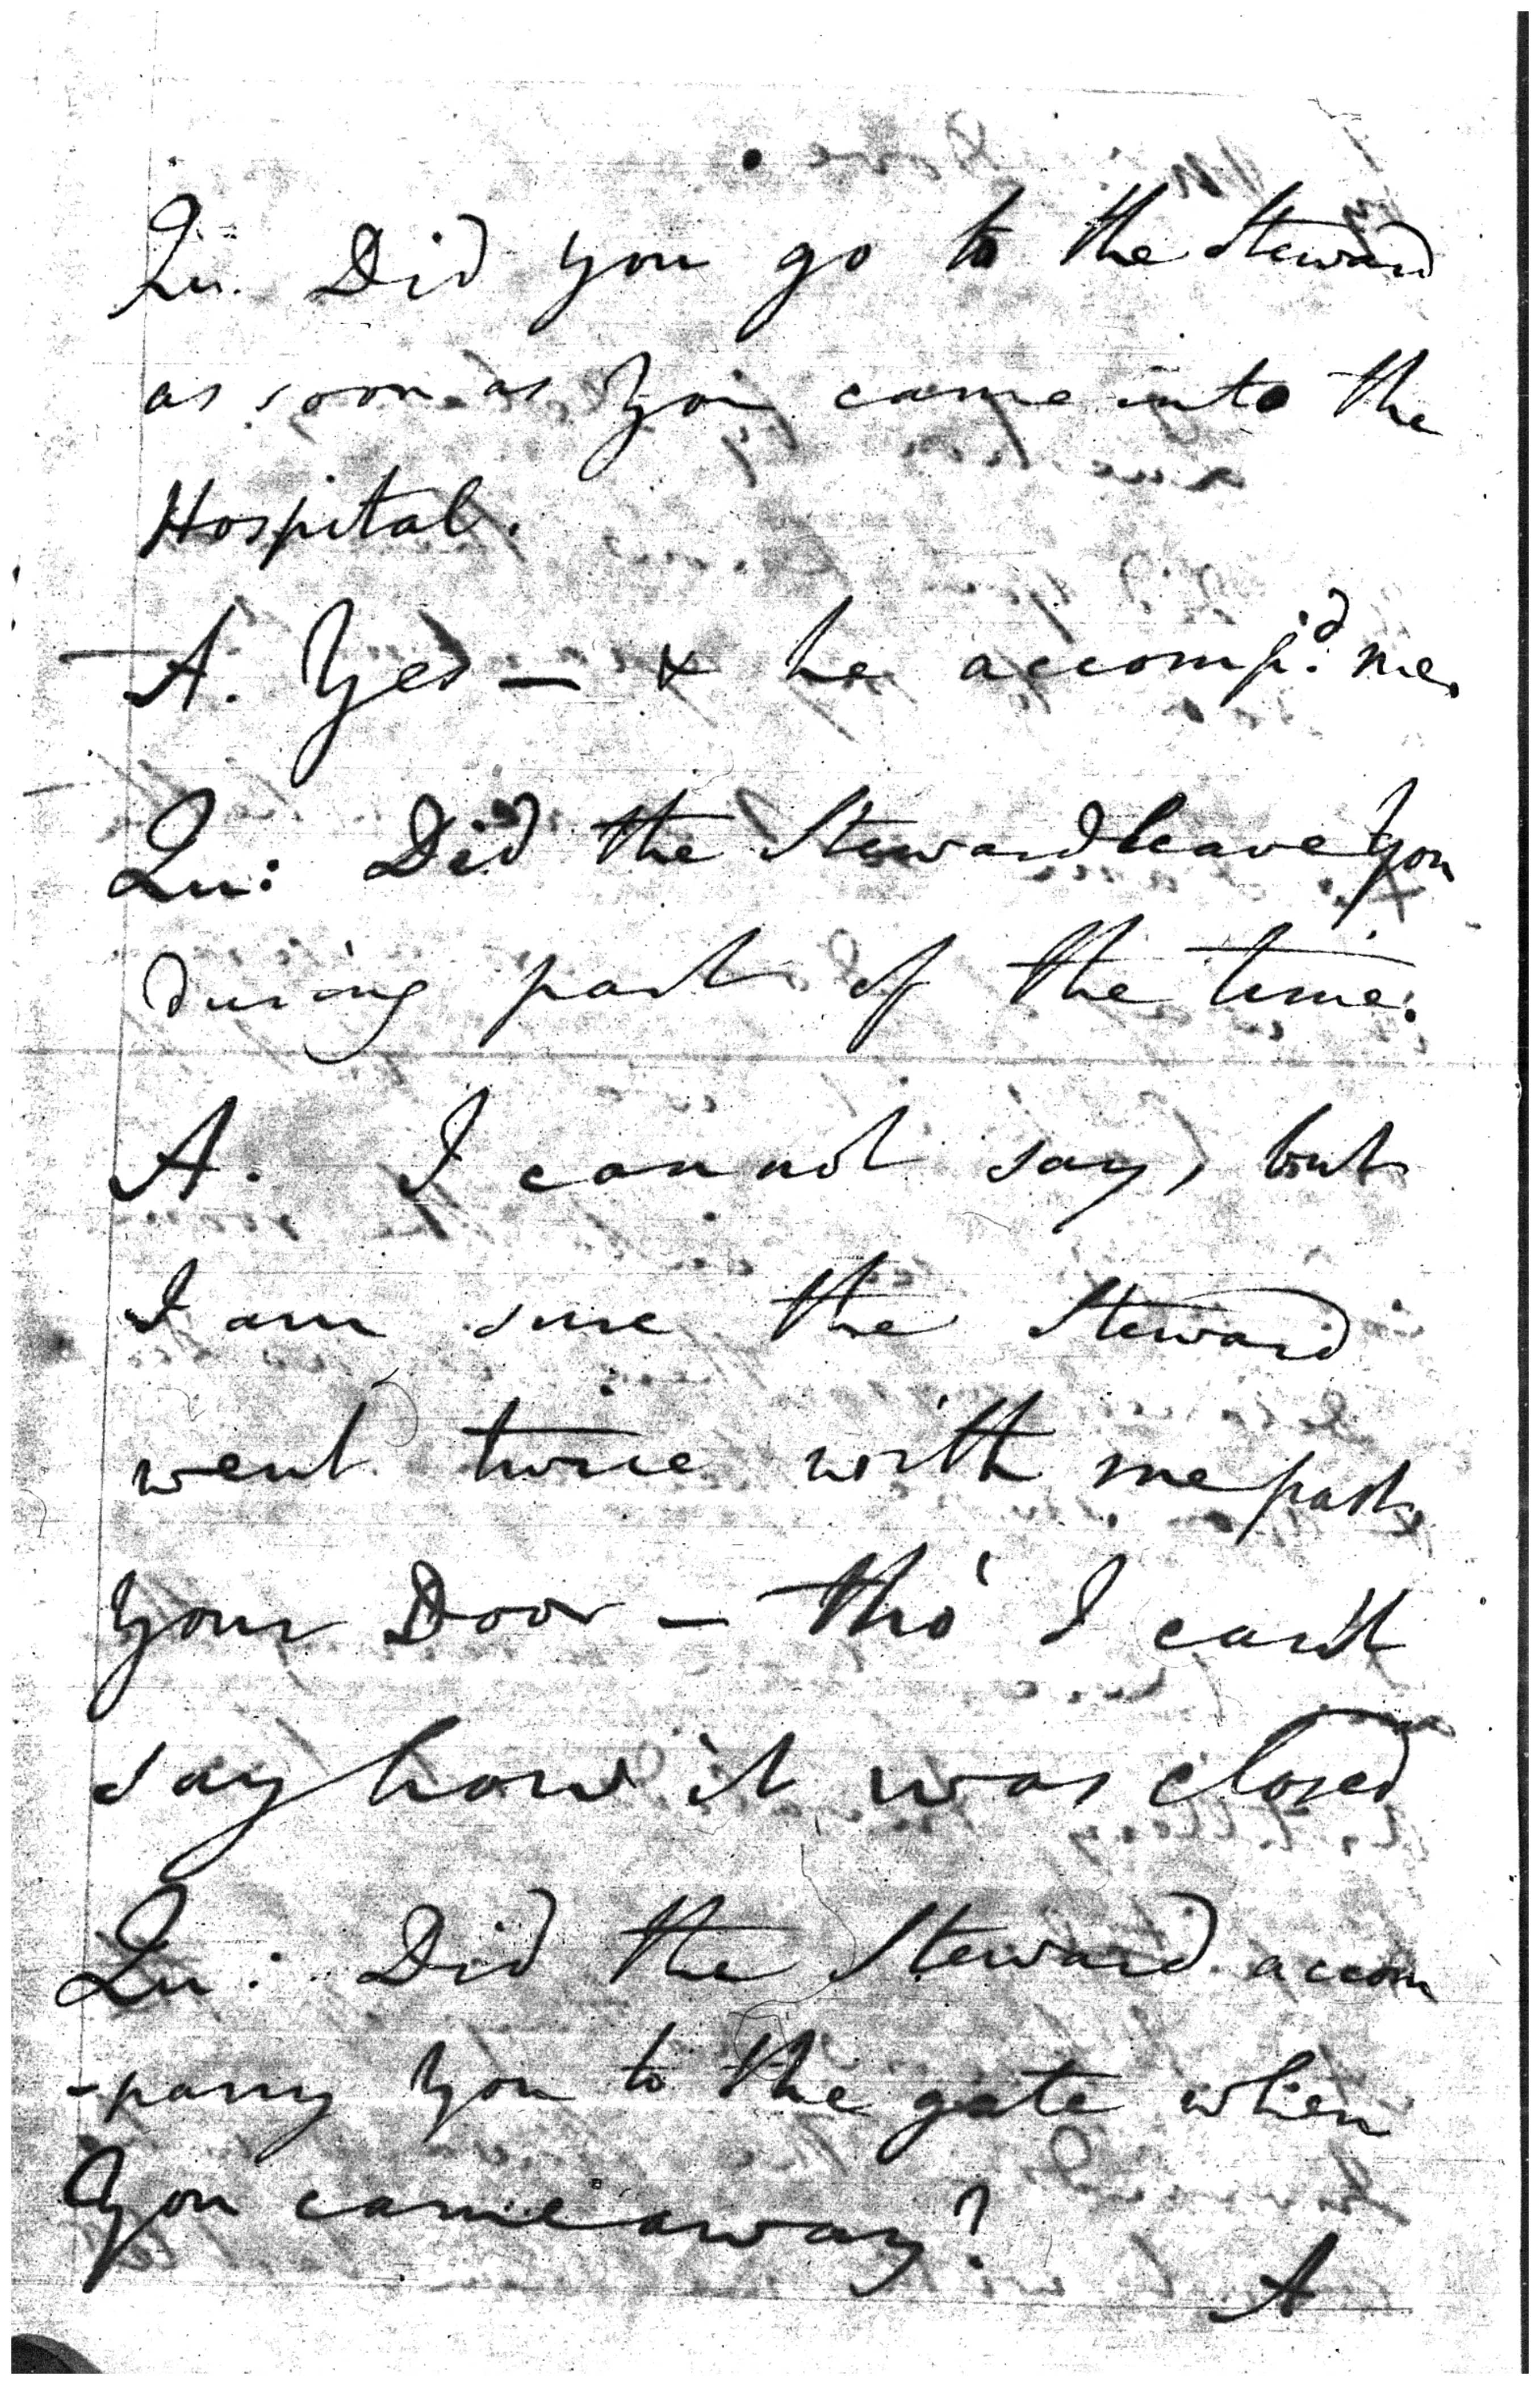 Qu. Did you go to the Steward
as soon as you came into the
Hospital.
A. Yes — & he accomp.d me.
Qu: Did the Steward leave you
during part of the time.
A. I cannot say, but
I am sure the Steward
went twice with me past
your Door — tho' I can't
say how it was closed
Qu: Did the Steward accom
-pany you to the gate when
you came away?
A